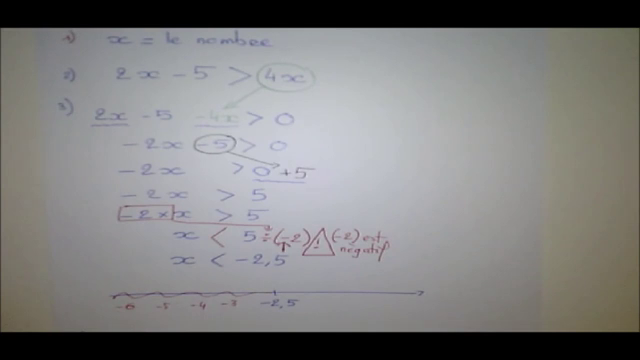 1) x = le nombre
2) 2x - 5 > 4x
3) 2x - 5 - 4x > 0
- 2x - 5 > 0
- 2x > 0 + 5
- 2x > 5
- 2 × x > 5
x < 5 ÷ (-2) ⚠ (-2) est négatif
x < - 2,5
-6 -5 -4 -3 -2,5